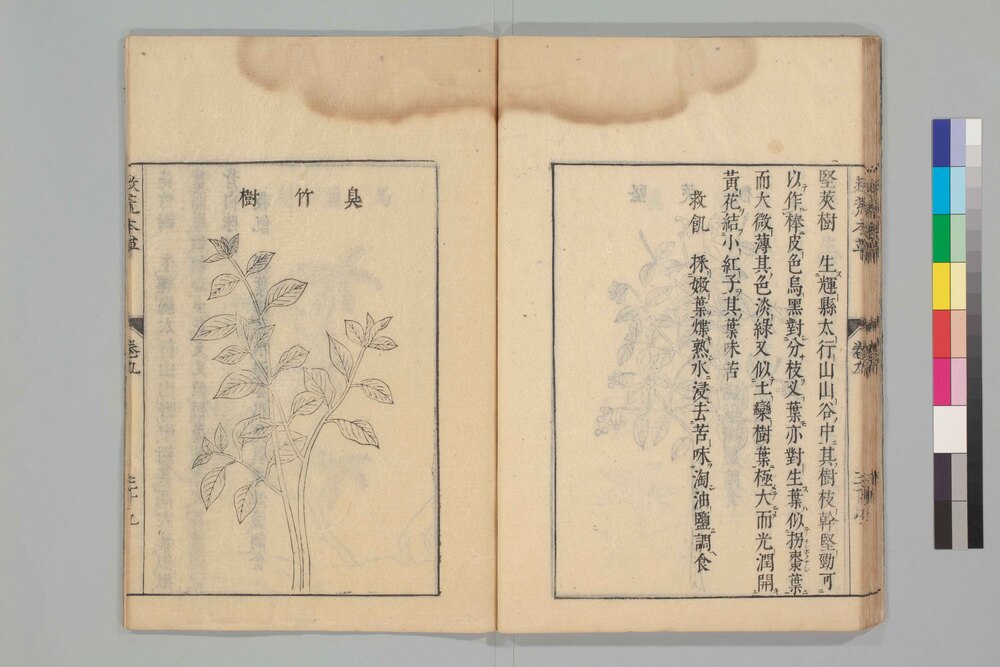 堅莢樹 生輝縣太行山山谷中其樹枝幹堅勁可
以作棒皮色烏黑對分枝叉葉亦對生葉似拐棗葉
而大微薄其色淡綠又似土欒樹葉極大而光潤開
黃花結小紅子其葉味苦
救飢 採嫩葉煠熟水浸去苦味淘油鹽調食
臭竹樹
救荒本草
卷九